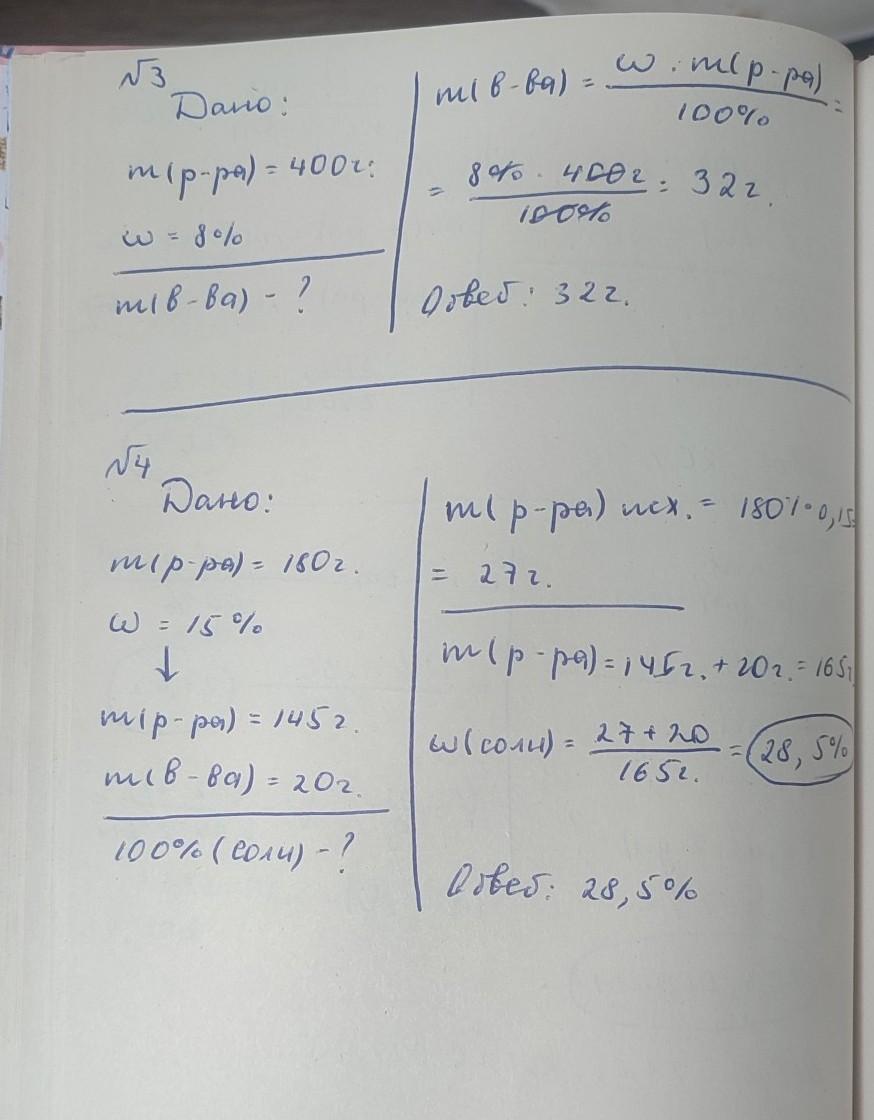 №3
Дано:
m(р-ра) = 400г.
ω = 8%
m(в-ва) - ?
m(в-ва) = ω · m(р-ра) / 100% =
= 8% · 400г / 100% = 32г.
Ответ: 32г.
№4
Дано:
m(р-ра) = 180г.
ω = 15%
↓
m(р-ра) = 145г.
m(в-ва) = 20г.
100% (соли) - ?
m(р-ра) исх. = 180г · 0,15=
= 27г.
m(р-ра) = 145г. + 20г. = 165г
ω(соли) = 27 + 20 / 165г. = 28,5%
Ответ: 28,5%